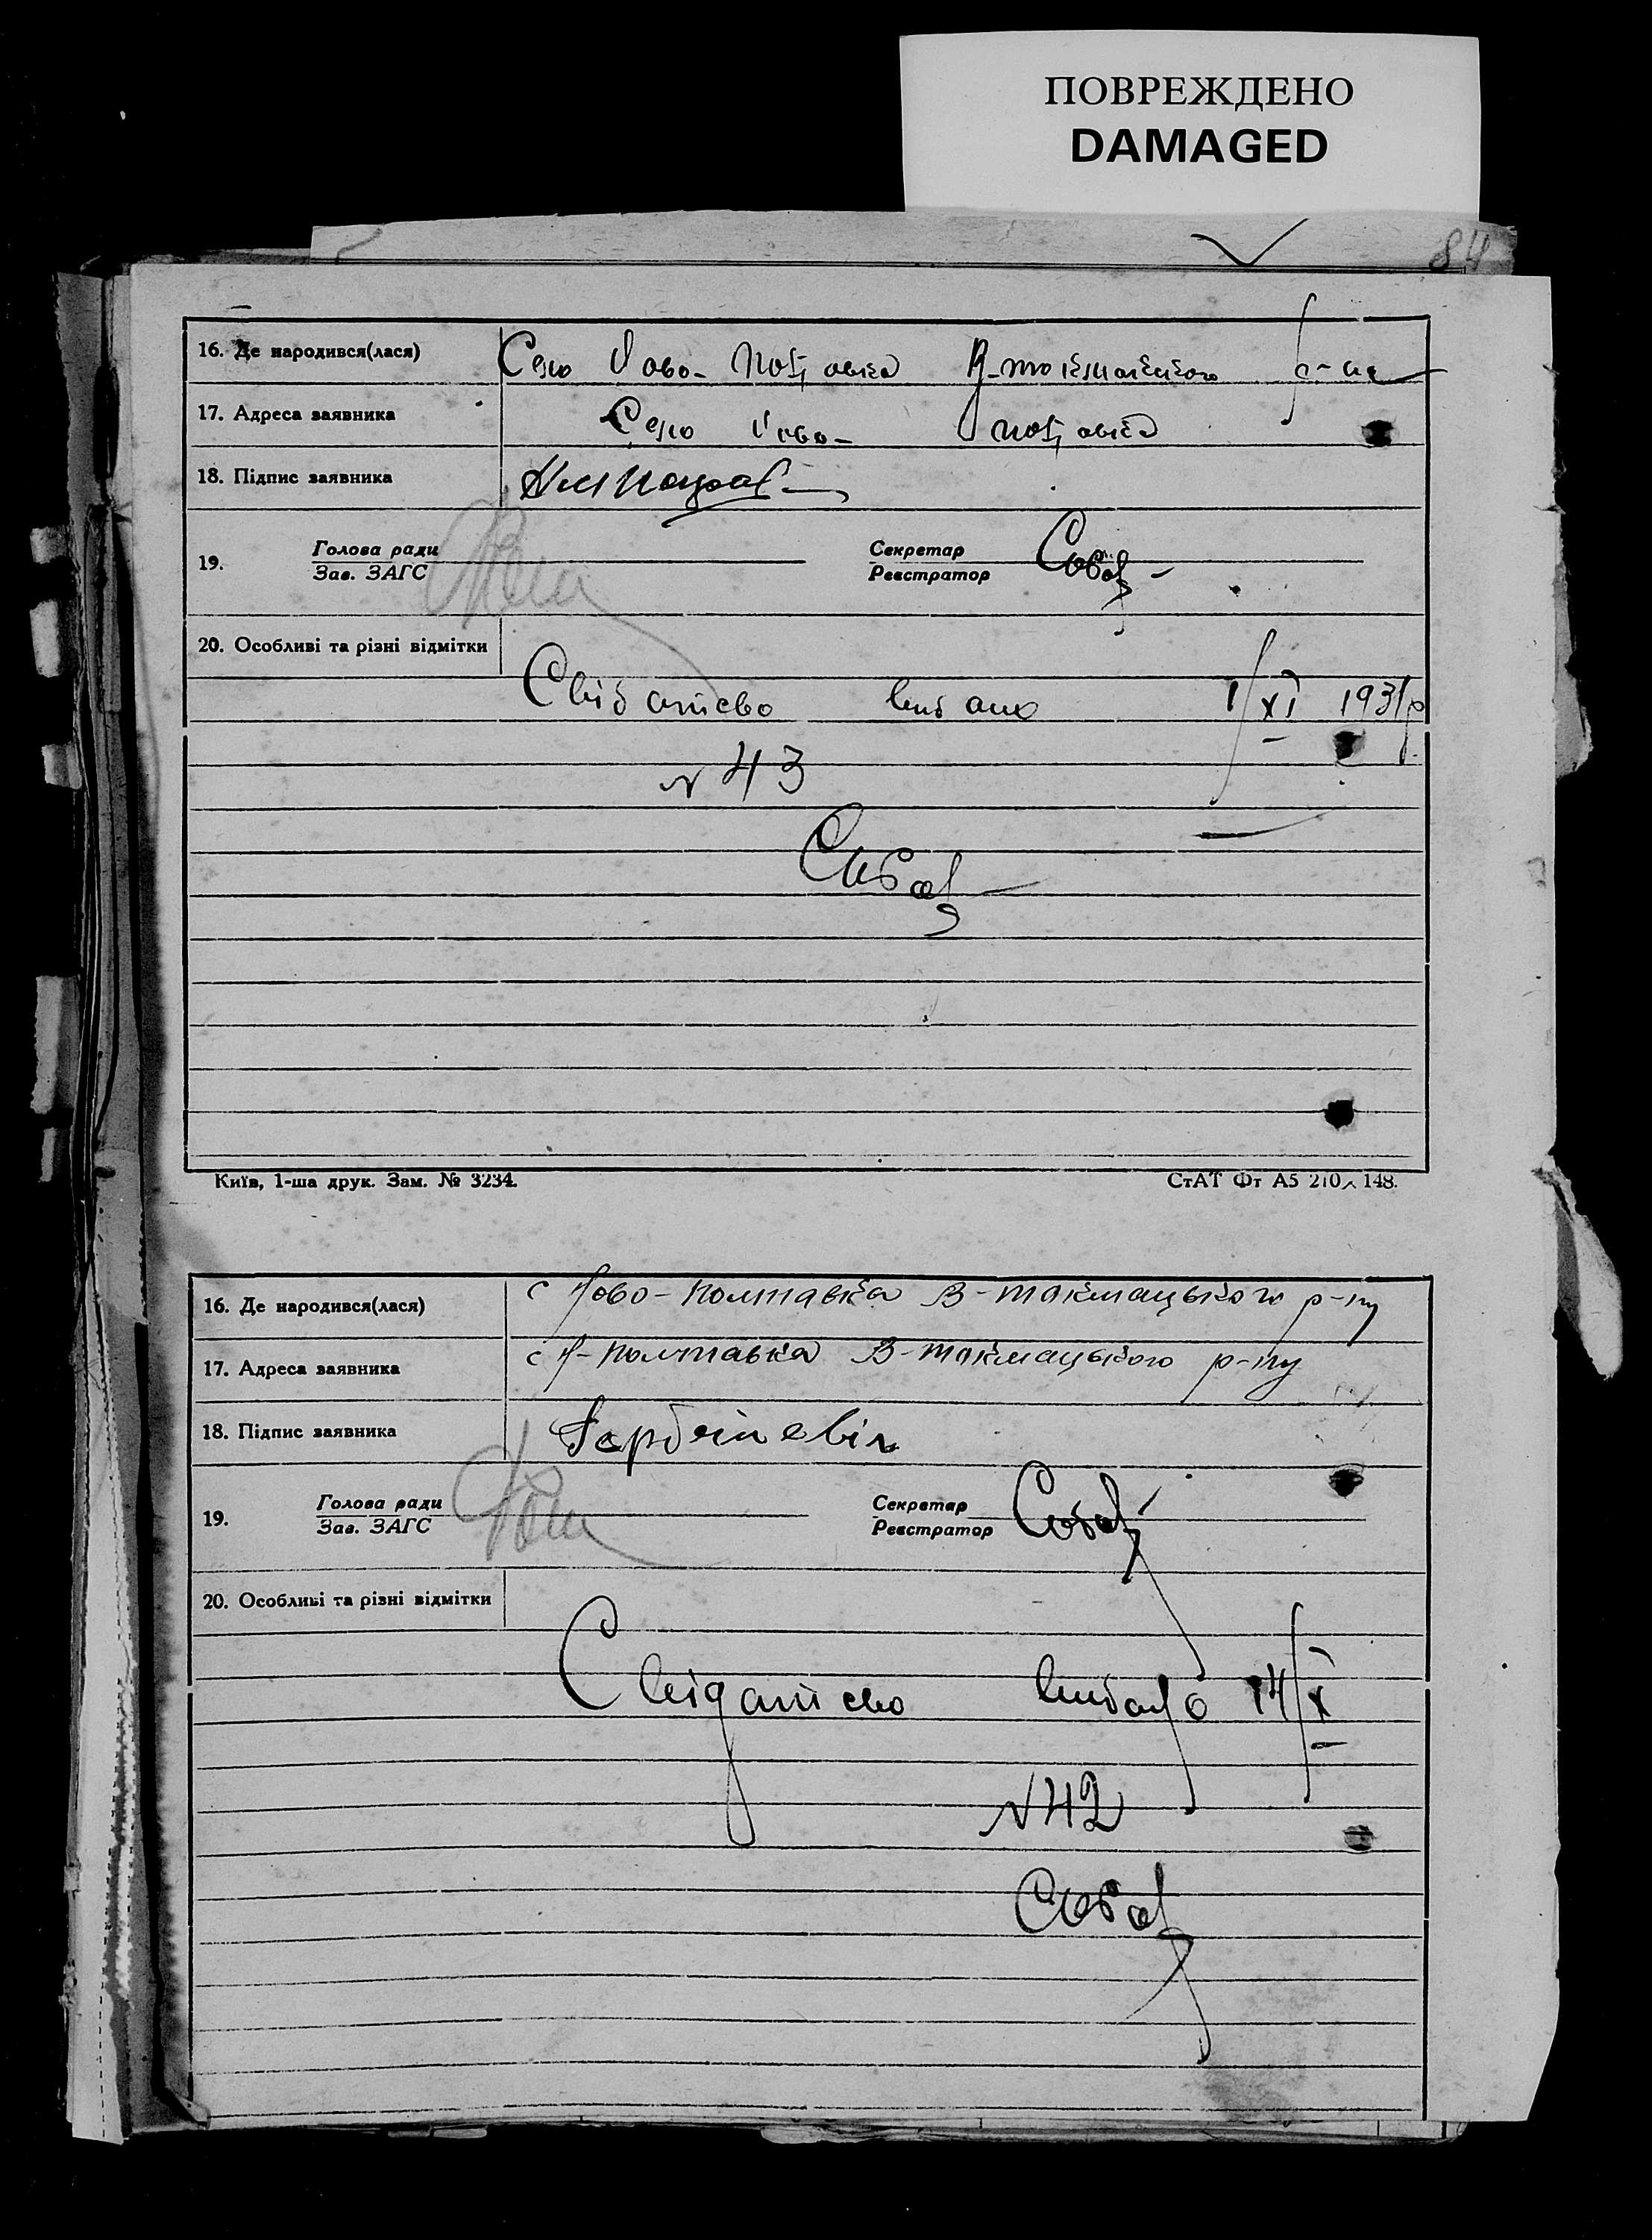 ПОВРЕЖДЕНО
DAMAGED
84
16. Де народився(лася) Село Ново- Полтавка В-токмацького р-на
17. Адреса заявника Село Ново- Полтавка
18. Підпис заявника
19. Голова ради Секретар
Зав. ЗАГС Реєстратор
20. Особливі та різні відмітки
Свідатсво видано 1/XI 1931р
№ 43
Київ, 1-ша друк. Зам. № 3234. СтАТ Фт А5 210×148.
16. Де народився(лася) с Ново-Полтавка В-Токмацького р-ну
17. Адреса заявника с Н-Полтавка В-Токмацького р-ну
18. Підпис заявника
19. Голова ради Секретар
Зав. ЗАГС Реєстратор
20. Особливі та різні відмітки
Свідатсво видано 14/X
№ 42